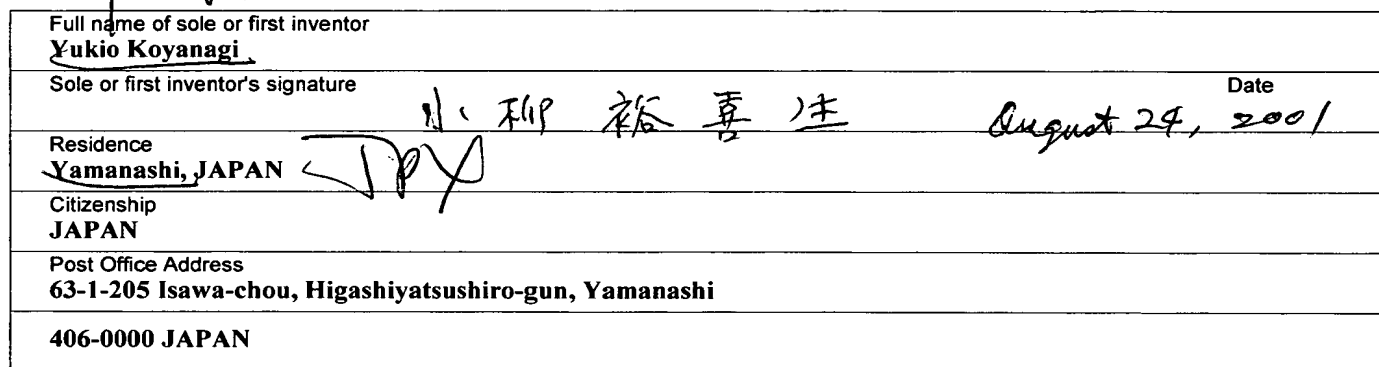 Full name of sole or first inventor
Yukio Koyanagi
Sole or first inventor's signature
Date
小柳 裕喜生 August 24, 2001
Residence
Yamanashi, JAPAN JPX
Citizenship
JAPAN
Post Office Address
63-1-205 Isawa-chou, Higashiyatsushiro-gun, Yamanashi
406-0000 JAPAN